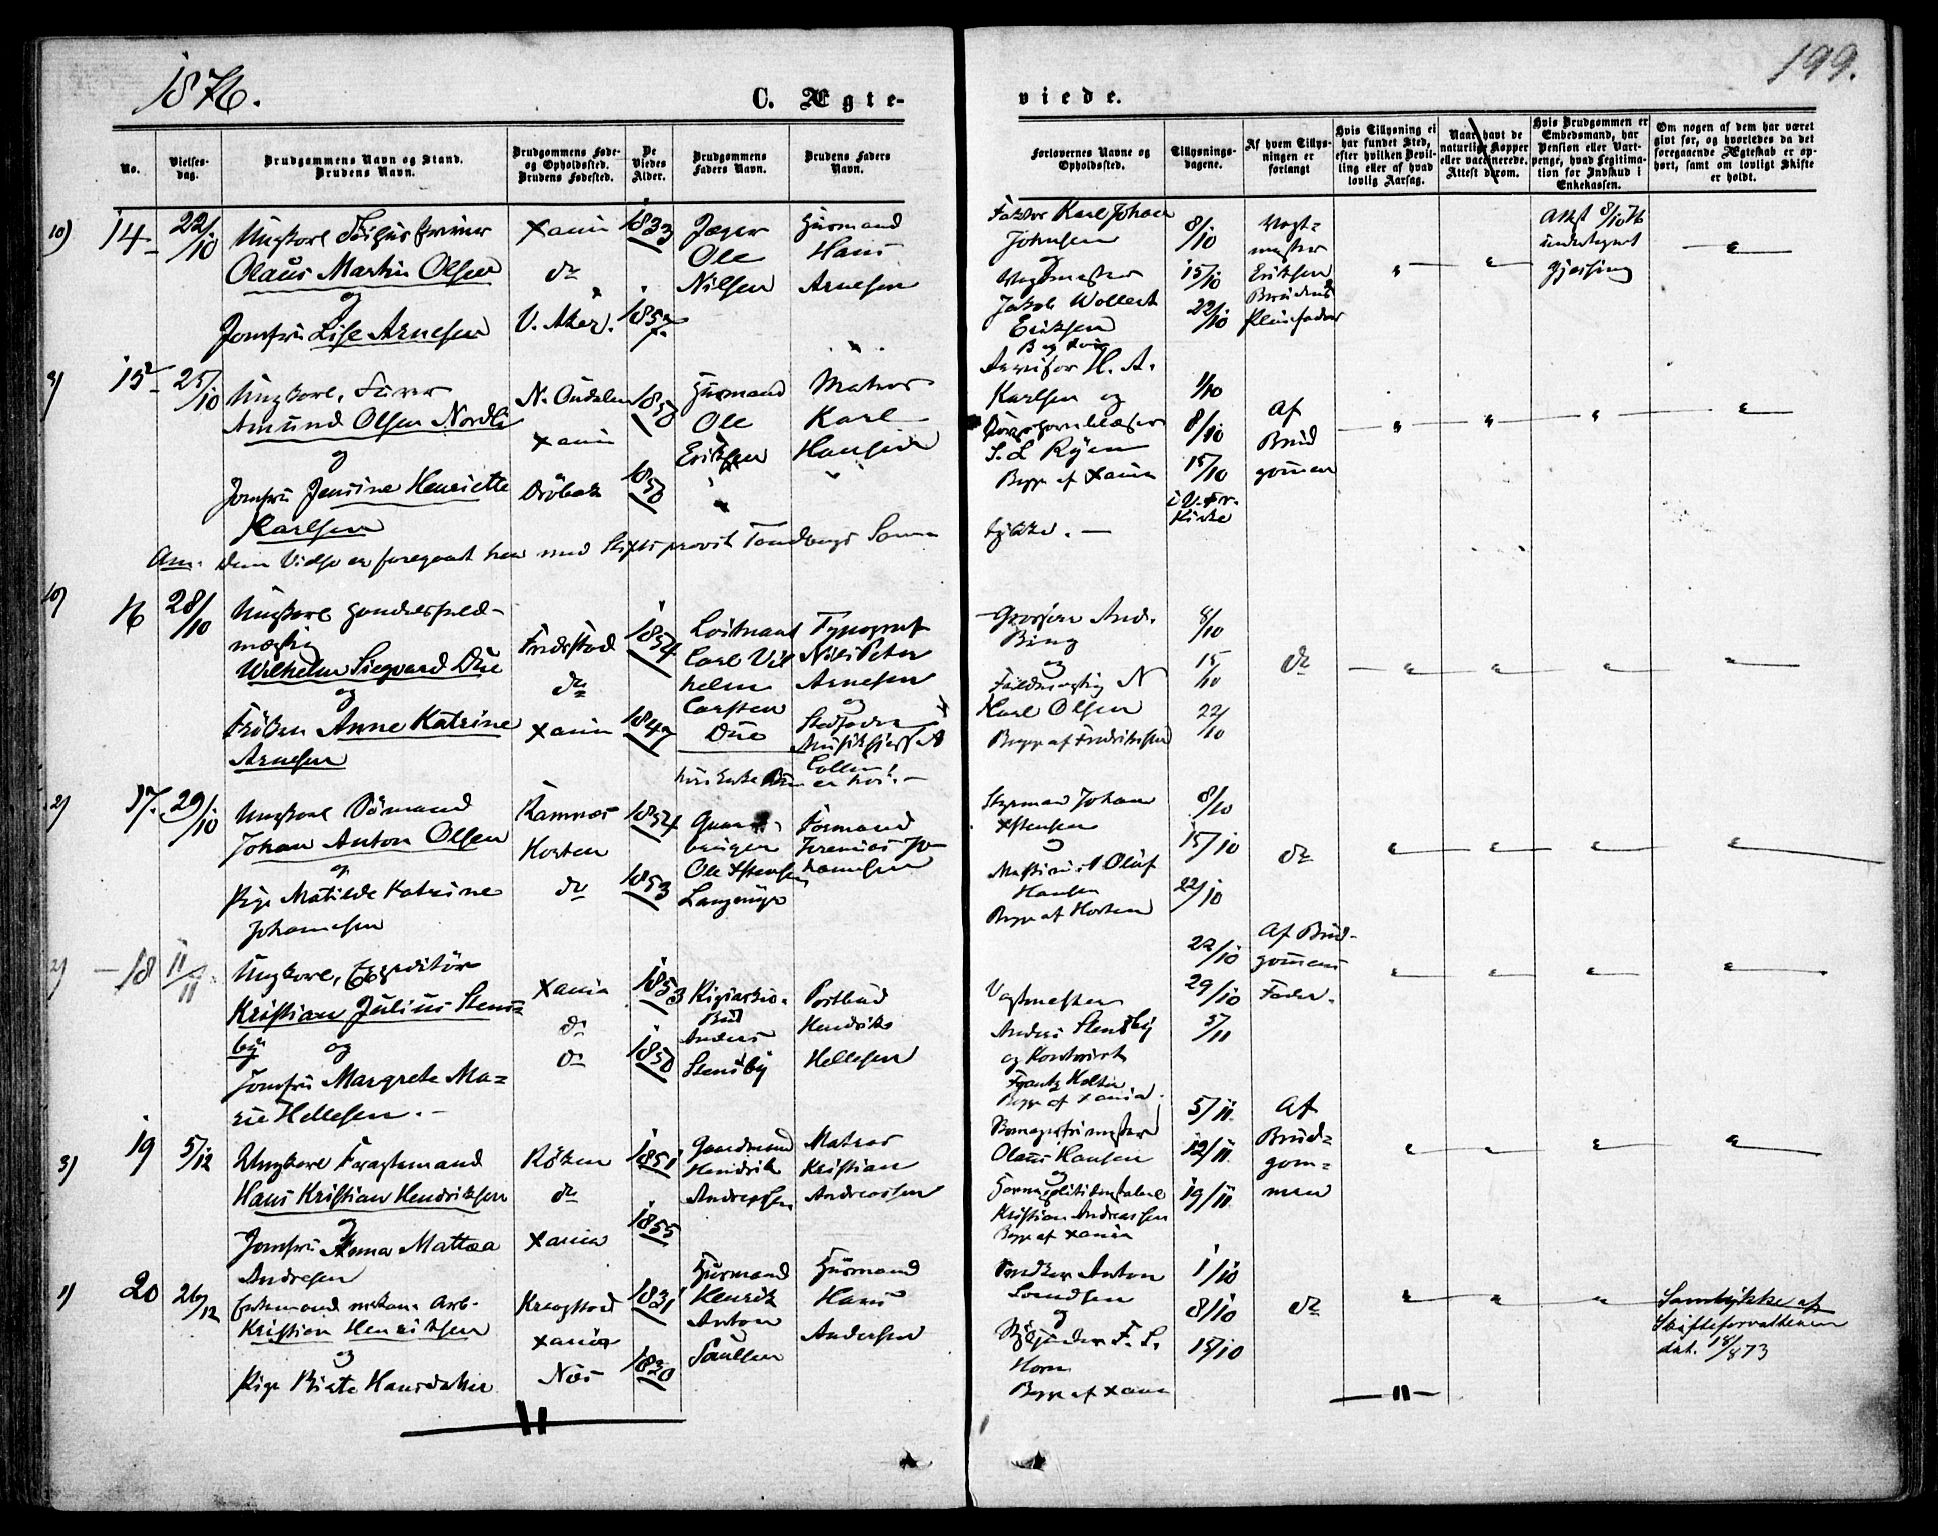 1876.
C. Ægte-
viede.
199.
No.
Vielses-
dag.
Brudgommens Navn og Stand.
Brudens Navn.
Brudgommens Føde-
og Opholdssted.
Brudens Fødested.
De
Viedes
Alder.
Brudgommens
Faders Navn.
Brudens Faders
Navn.
Forlovernes Navne og
Opholdssted.
Tillysnings-
dagene.
Af hvem Tillys-
ningen er
forlangt
Hvis Tillysning ei
har fundet Sted,
efter hvilken Bevil-
ling eller af hvad
lovlig Aarsag.
Naar havt de
naturlige Kopper
eller vaccinerede.
Attest derom.
Hvis Brudgommen er
Embedsmand, har
Pension eller Vart-
penge, hvad Legitima-
tion for Indskud i
Enkekassen.
Om nogen af dem har været
givt før, og hvorledes da det
foregaaende Ægteskab er op-
hørt, samt om lovligt Skifte
er holdt.
10) 14 22/10
Ungkarl
Olaus Martin Olsen
og
Jomfru Lise Arnesen
Xania
do
V. Aker.
1833
1857
Jæger
Ole
Nilsen
Husmand
Hans
Arnesen
Karl Johan
Johnsen
og
Vagtmester
Jakob Wollert
Eriksen
8/10
15/10
22/10
Vagt-
mester
Eriksen
Brudens
Pleiefader
Attst 8/10 76
undertegnet
Gjessing
3) 15 25/10
Ungkarl,
Amund Olsen Nordli
og
Jomfru Jensine Henriette
Karlsen
N. Oudalen
Xania
Drøbak
1850
1850
Husmand
Ole
Eriksen
Matros
Karl
Hansen
H. A.
Karlsen og
S. L. Ryen
Begge af Xania
1/10
8/10
15/10
i V. Fr.
Kirke
Af
Brud
gommen
Anm. Denne Vielse er foregaaet her med Stiftsprovst Tandbergs Sam-
tykke. —
10) 16 28/10
Ungkarl Handelsfuld-
mægtig
Wilhelm Siegvard Due
og
Frøken Anne Katrine
Arnesen
Fredrstad
do
Xania
1854
1847
Loitnant
Carl Vil
helm
Carsten
Due
Typograf
Nils Peter
Arnesen
og
Stedfader
er hos
Grosserer And.
Bing
og
Fuldmægtig N
Karl Olsen
Begge af Fredrikstad
8/10
15/10
22/10
do
2) 17. 29/10
Ungkarl Sømand
Johan Anton Olsen
og
Pige Matilde Katrine
Johannesen
Ramnæs
Horten
do
1854
1853
Ole
Formand
Jeremias Jo-
hannesen
Styrmand Johan
og
Maskinist Oluf
Hansen
Begge af Horten
8/10
15/10
22/10
do
2) 18 11/11
Ungkarl, Expeditør
Kristian Julius Stens-
by og
Jomfru Margrete Ma-
rie Hellesen. —
Xania
do
do
1853
1850
Bud
Anders
Stensby
Postbud
Hendrik
Hellesen
Vagtmester
Anders Stensby
og
Frantz Holter
Begge af Xania.
22/10
29/10
5/11
Af Brud-
gommens
Fader.
3) 19 5/12
Ungkarl Fragtemand
Hans Kristian Hendriksen
og
Jomfru Anna Mattea
Andresen
Røken
do
Xania
1851
1855
Gaardmand
Hendrik
Andreassen
Matros
Kristian
Andreassen
Olaus Hansen
og
Kristian Andreassen
Begge af Xania
5/11
12/11
19/11
Af
Brud-
gom-
men
1) 20 26/12
Enkemand Arb.
Kristian Henriksen
og
Pige Birte Hansdatter
Kraagstad
Xania
Næs
1831
1830
Husmand
Henrik
Anton
Paulsen
Husmand
Hans
Andersen
Anton
og
F. L.
Horn
Begge af Xania
1/10
8/10
15/10
do
Samtykke af
Skifteforvalteren
dat. 18/ 873